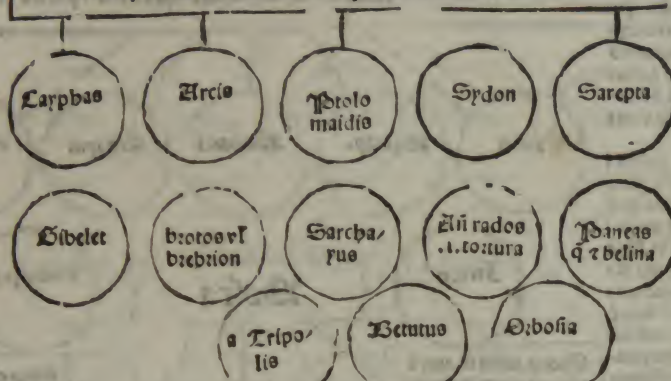 Cayphas
Arcis
Ptolo
maidis
Sydon
Sarepta
Gibelet
brotos vl
brebrion
Sarcha/
rus
Añ rados
.i. tortura
Paneas
q ⁊ belina
a Tripo/
lis
Berutus
Orbosia